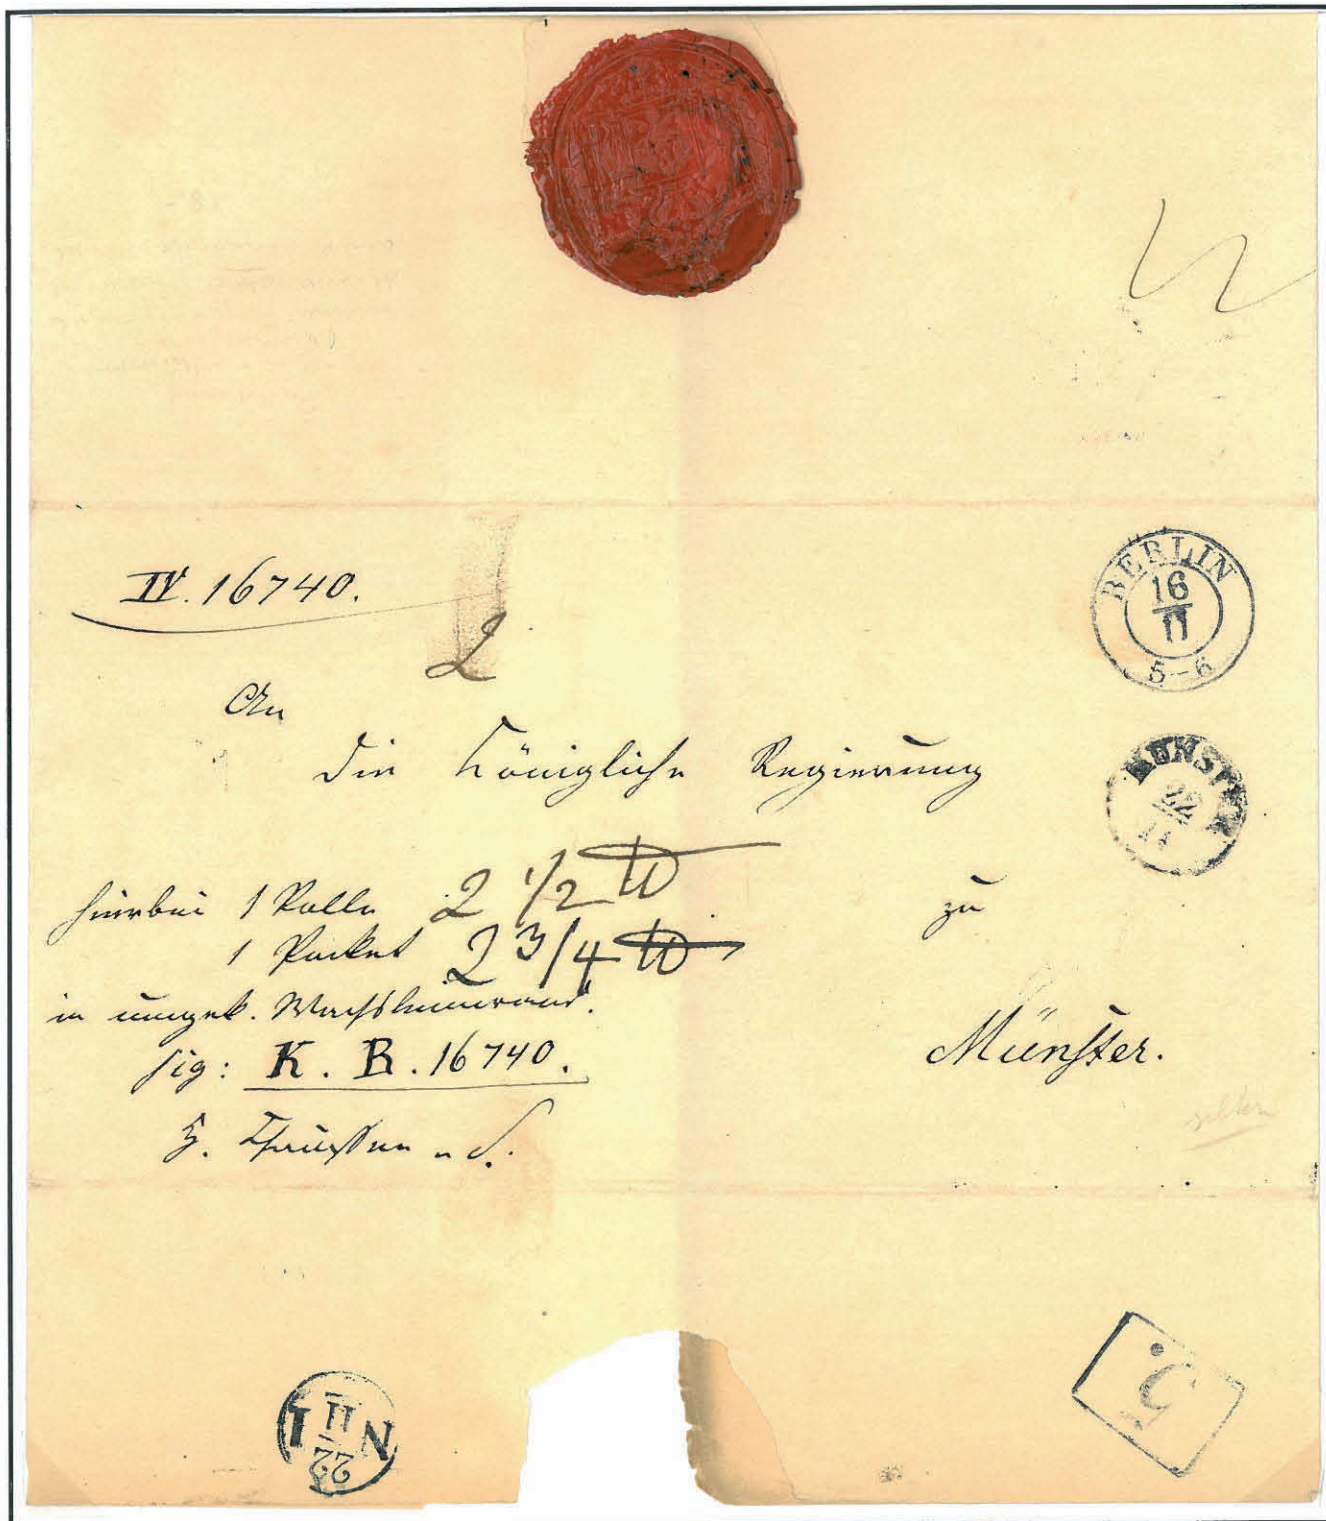 IV. 16740.
2
An
die Königliche Regierung
hierbei 1 Rolle 2 1/2 ℔
1 Packet 2 3/4 ℔
zu
in ungek. Wachsleinwand.
sig: K. R. 16740.
Münster.
selten
BERLIN
16
11
5-6
MÜNSTER
22
11
N 1
22
11
5.